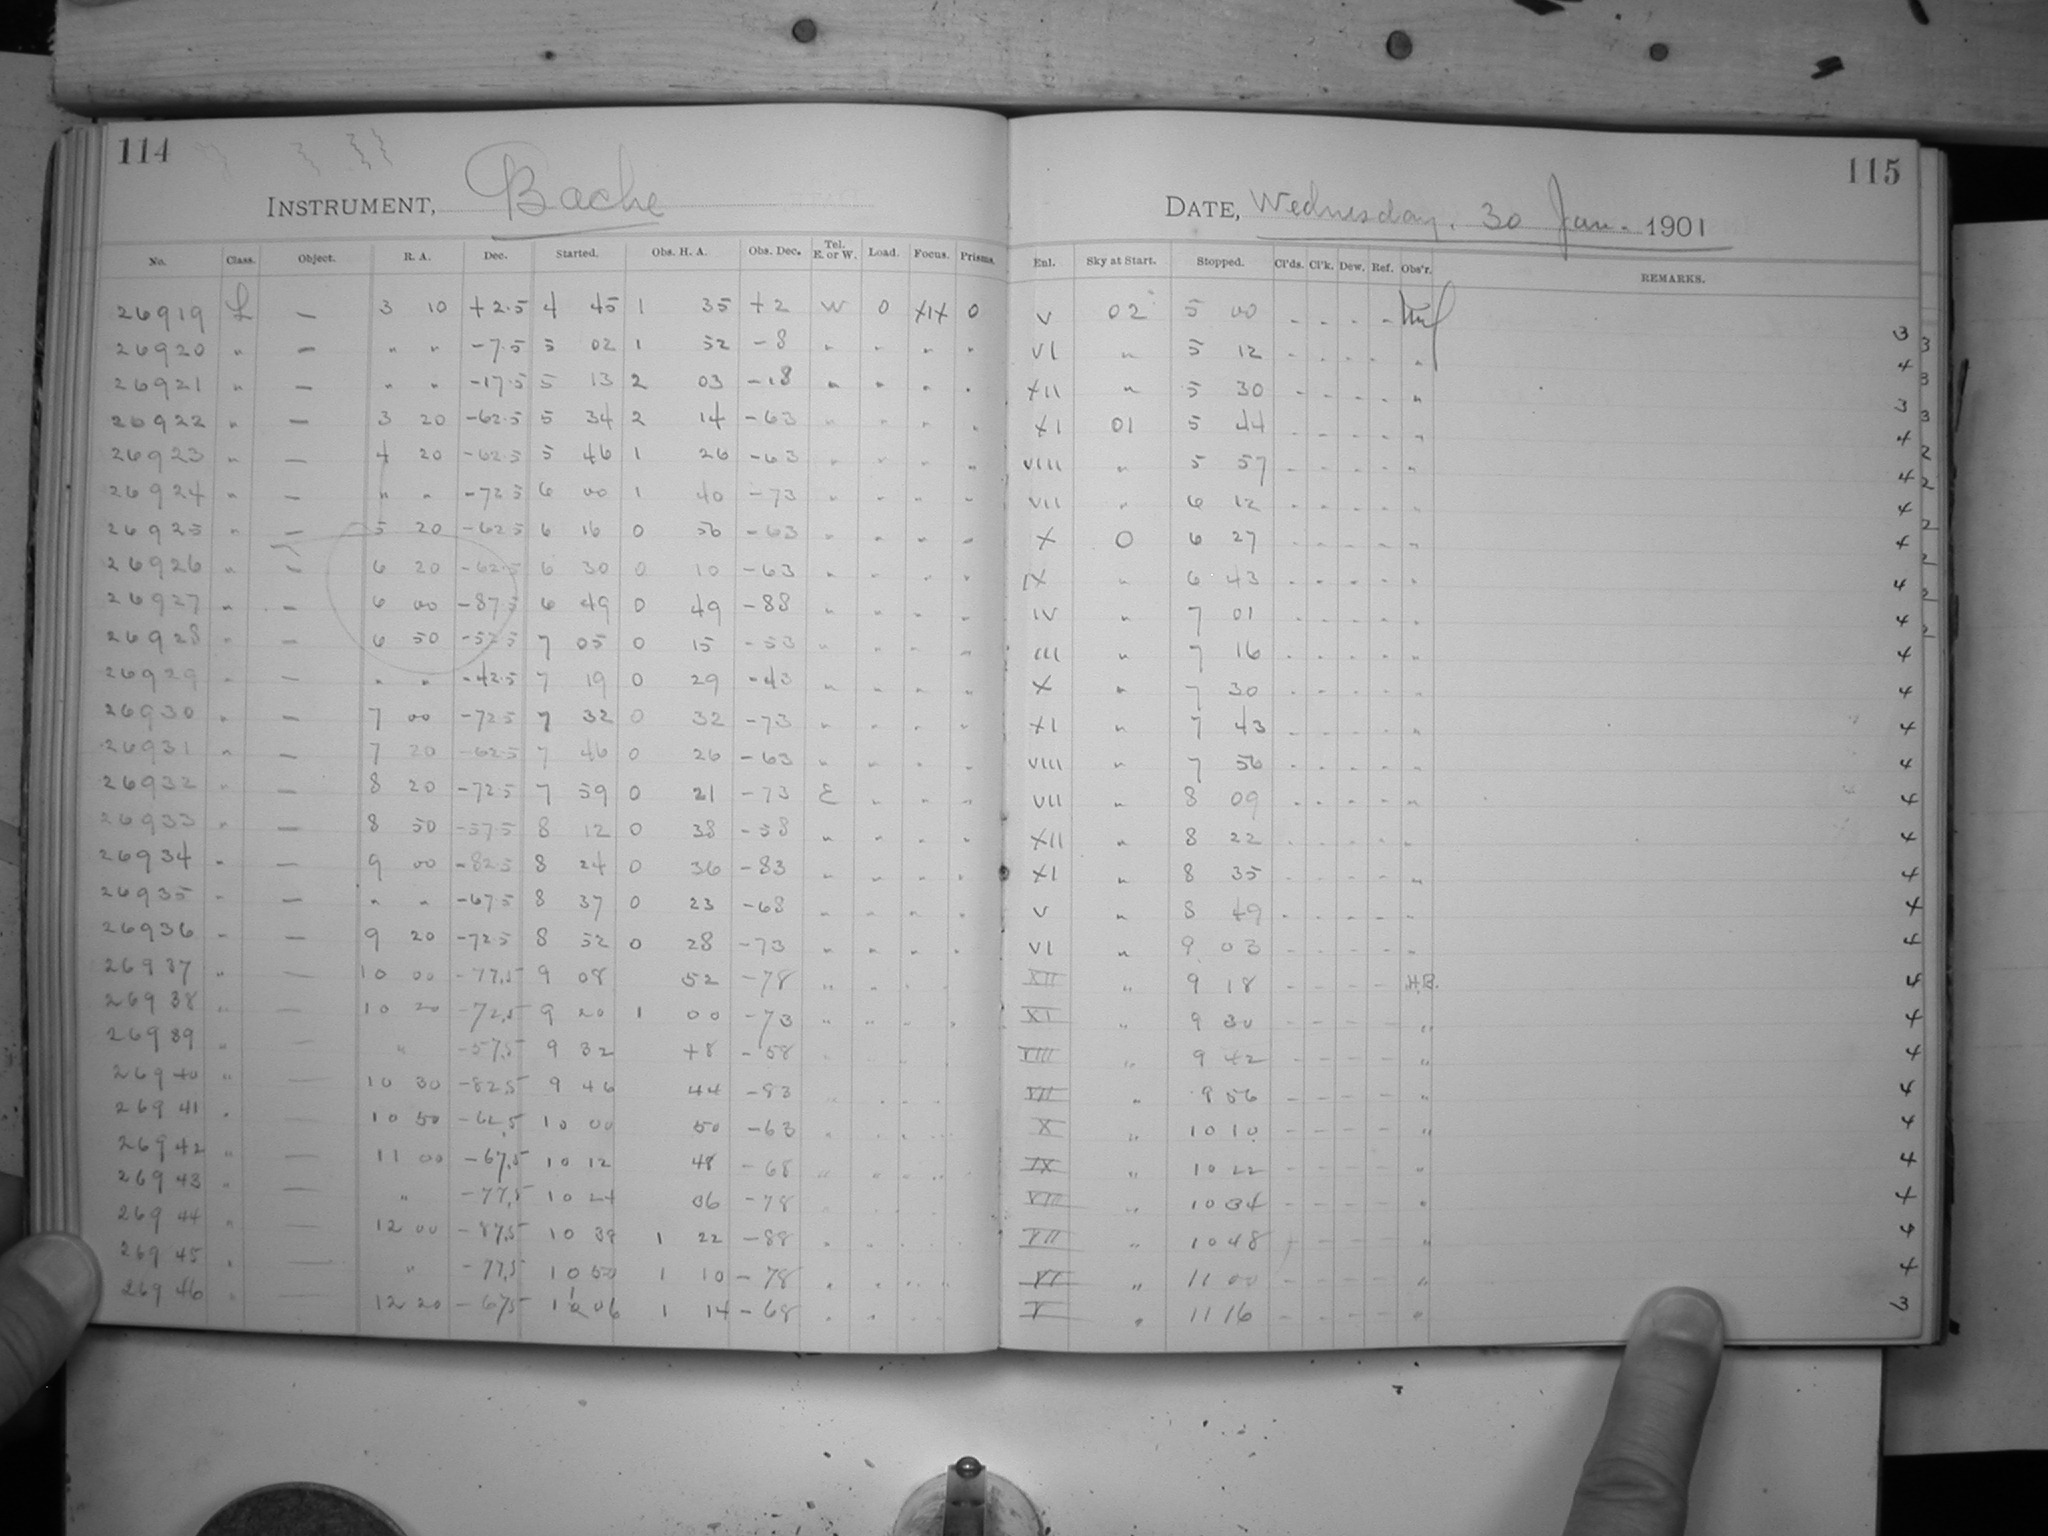 114
INSTRUMENT, Bache
No. Class. Object. R. A. Dec. Started. Obs. H. A. Obs. Dec. Tel. E. or W. Load. Focus. Prisms.
26919 L — 3 10 +2.5 4 45 1 35 +2 W 0 XIX 0
26920 " — " " -7.5 5 02 1 52 -8 " " " "
26921 " — " " -17.5 5 13 2 03 -18 " " " "
26922 " — 3 20 -62.5 5 34 2 14 -63 " " " "
26923 " — 4 20 -62.5 5 46 1 26 -63 " " " "
26924 " — " " -72.5 6 00 1 40 -73 " " " "
26925 " — 5 20 -62.5 6 16 0 56 -63 " " " "
26926 " — 6 20 -62.5 6 30 0 10 -63 " " " "
26927 " — 6 00 -87.5 6 49 0 49 -88 " " " "
26928 " — 6 50 -52.5 7 05 0 15 -53 " " " "
26929 " — " " -42.5 7 19 0 29 -43 " " " "
26930 " — 7 00 -72.5 7 32 0 32 -73 " " " "
26931 " — 7 20 -62.5 7 46 0 26 -63 " " " "
26932 " — 8 20 -72.5 7 59 0 21 -73 E " " "
26933 " — 8 50 -57.5 8 12 0 38 -58 " " " "
26934 " — 9 00 -82.5 8 24 0 36 -83 " " " "
26935 " — " " -67.5 8 37 0 23 -68 " " " "
26936 " — 9 20 -72.5 8 52 0 28 -73 " " " "
26937 " — 10 00 -77.5 9 08 52 -78 " " " "
26938 " — 10 20 -72.5 9 20 1 00 -73 " " " "
26939 " — " -57.5 9 32 +8 -58 " " " "
26940 " — 10 30 -82.5 9 46 44 -83 " " " "
26941 " — 10 50 -62.5 10 00 50 -63 " " " "
26942 " — 11 00 -67.5 10 12 48 -68 " " " "
26943 " — " -77.5 10 24 36 -78 " " " "
26944 " — 12 00 -87.5 10 38 1 22 -88 " " " "
26945 " — " -77.5 10 50 1 10 -78 " " " "
26946 " — 12 20 -67.5 11 06 1 14 -68 " " " "
115
DATE, Wednesday. 30 Jan. 1901
Enl. Sky at Start. Stopped. Cl'ds. Cl'k. Dew. Ref. Obs'r. REMARKS.
V 02 5 00 - - - - 3
VI " 5 12 - - - - " 4
XII " 5 30 - - - - " 3
XI 01 5 44 - - - - " 4
VIII " 5 57 - - - - " 4
VII " 6 12 - - - - " 4
X 0 6 27 - - - - " 4
IX " 6 43 - - - - " 4
IV " 7 01 - - - - " 4
III " 7 16 - - - - " 4
X " 7 30 - - - - " 4
XI " 7 43 - - - - " 4
VIII " 7 56 - - - - " 4
VII " 8 09 - - - - " 4
XII " 8 22 - - - - " 4
XI " 8 35 - - - - " 4
V " 8 49 - - - - " 4
VI " 9 03 - - - - " 4
XII " 9 18 - - - - H.B. 4
XI " 9 30 - - - - " 4
VIII " 9 42 - - - - " 4
VII " 9 56 - - - - " 4
X " 10 10 - - - - " 4
IX " 10 22 - - - - " 4
VIII " 10 34 - - - - " 4
VII " 10 48 - - - - " 4
VI " 11 00 - - - - " 4
V " 11 16 - - - - " 3